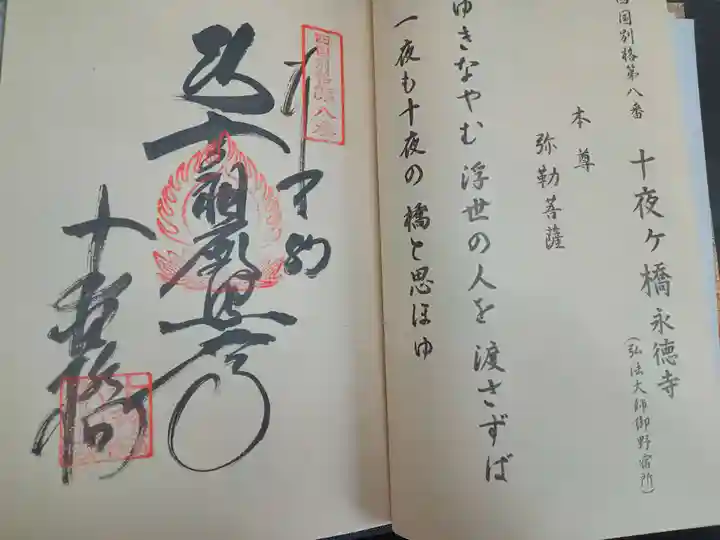 四国別格第八番
十夜ヶ橋永徳寺
(弘法大師御野宿所)
本尊
弥勒菩薩
ゆきなやむ浮世の人を渡さずば
一夜も十夜の橋と思ほゆ
四国別格第八番
奉拝
十夜橋